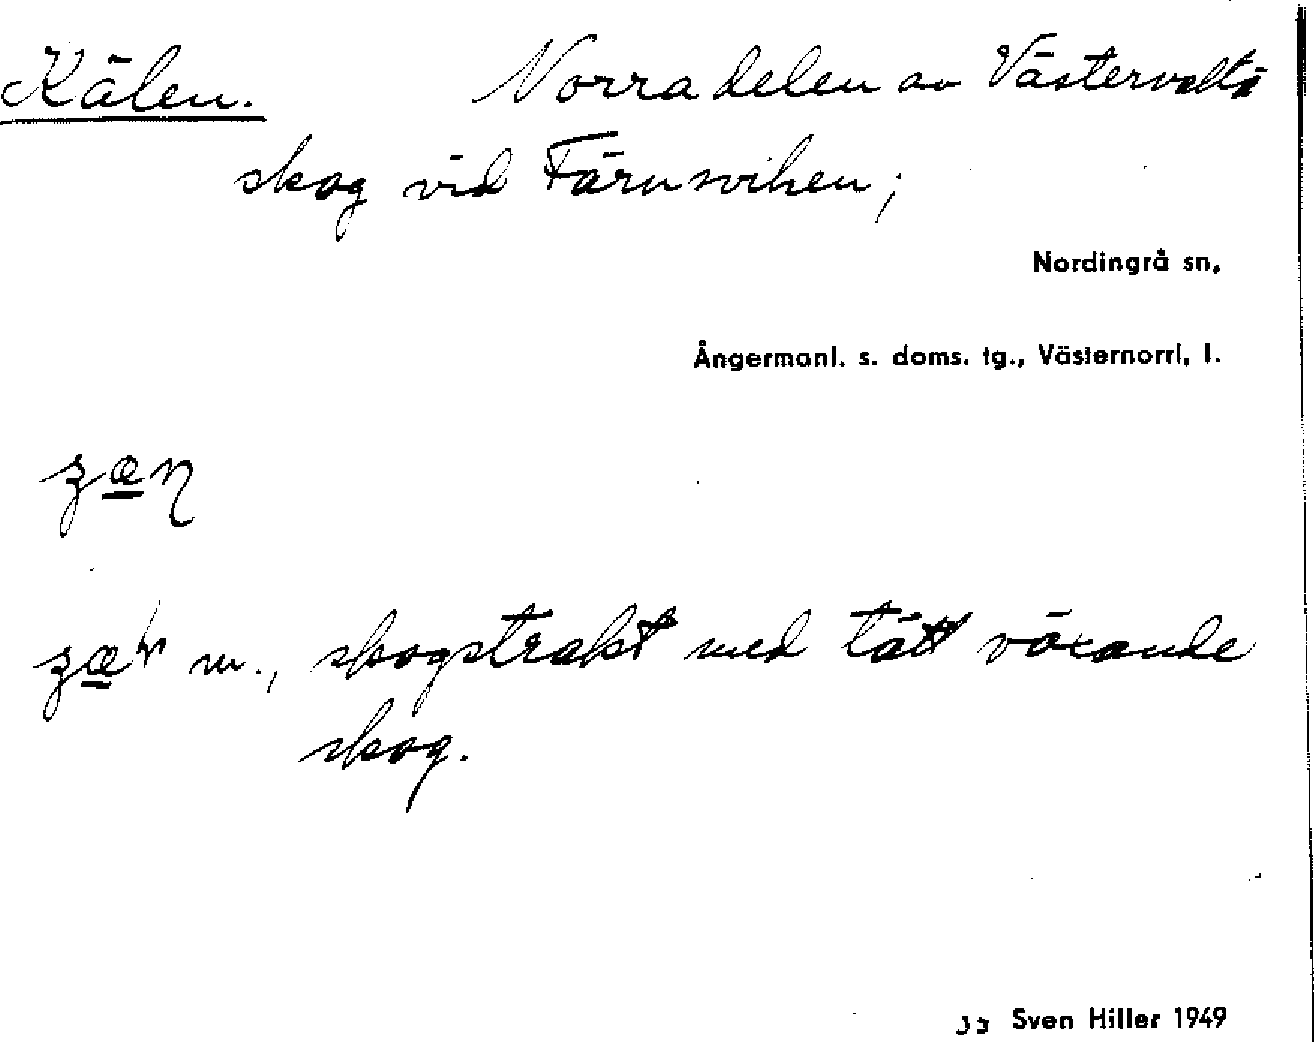 Kälen. Norra delen av Västervalts
skog vid Färnsviken;
Nordingrå sn,
Ångermanl. s. doms. tg., Västernorrl. l.
m., skogstrakt med tätt växande
skog.
Sven Hiller 1949